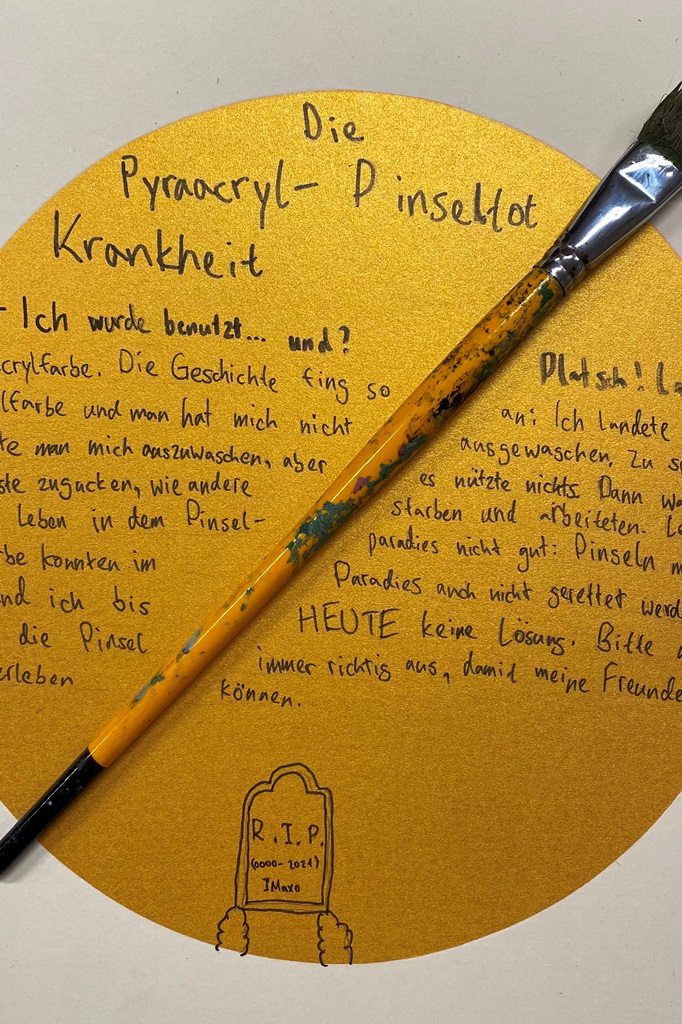 Die
Pyraacryl- Pinseltot
Krankheit
- Ich wurde benutzt... und? Platsch! La
crylfarbe. Die Geschichte fing so an: Ich landete
lfarbe und man hat mich nicht ausgewaschen. Zu s
te man mich auszuwaschen, aber es nützte nichts. Dann wa
ste zugucken, wie andere starben und arbeiteten. Le
Leben in dem Pinsel- paradies nicht gut: Pinseln m
be konnten im Paradies auch nicht gerettet werd
nd ich bis HEUTE keine Lösung. Bitte
die Pinsel immer richtig aus, damit meine Freunde
erleben können.
R.I.P.
(0000-2021)
IMaxo